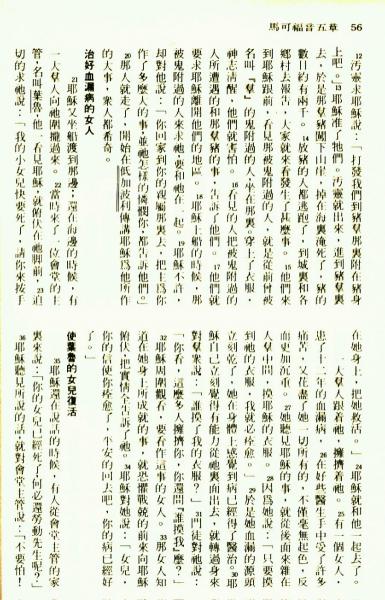 馬可福音五章 56
12汚靈求耶穌說：「打發我們到豬羣那裏附在豬羣
上吧。」13耶穌准了牠們。汚靈就出來，進到豬羣裏
去，於是那羣豬闖下山崖，在海裏淹死了，豬的
數目約有兩千。14放豬的人都逃跑了，到城裏和各
鄉村去報告，大家就來看發生了甚麼事。15他們來
到耶穌跟前，看見那被鬼附過的人，就是從前曾被
名叫『羣』的鬼附過的人，坐在那裏，穿上了衣服，
神志清醒，他們就害怕。16看見的人把被鬼附過的
人所遭遇的和那羣豬的事，告訴了他們。17他們就
要求耶穌離開他們的地區。18耶穌上船的時候，那
被鬼附過的人來求祂要和祂在一起。19耶穌不許，
却對他說：「你回家到你的親屬那裏去，把主爲你
作了多麼大的事，並祂怎樣的憐憫你，都告訴他們。」
20那人就走了，開始在低加波利傳講耶穌爲他所作
的大事，衆人都希奇。
治好血漏病的女人
21耶穌又坐船渡到那邊，還在海邊的時候，有
一大羣人向祂圍攏過來。22當時來了一位會堂的主
管，名叫葉魯，他一看見耶穌，就俯伏在祂脚前，23迫
切的求祂說：「我的小女兒快要死了，請你來按手
在她身上，把她救活。」24耶穌就和他一起去了。
一大羣人跟着祂，擁擠着祂。25有一個女人，
患了十二年的血漏病，26在好些醫生手中受了許多
痛苦，又花盡了她一切所有的，不僅毫無起色，反
而更加沉重。27她聽見耶穌的事，就從後面來雜在
人羣中間，摸耶穌的衣服，28因爲她說：「只要摸
到祂的衣服，我就必痊愈。」29於是她血漏的源頭
立刻乾了，她在身體上感覺到病已經得了醫治。30耶
穌自己立刻覺得有能力從祂裏面出去，就轉過身來
對羣衆說：「誰摸了我的衣服？」31門徒對祂說：
「你看，這麼多人擁擠你，你還問『誰摸我』麼？」
32耶穌周圍觀看，要看作這事的女人。33那女人知
道在她身上所成就的事，就恐懼戰兢的前來向耶穌
俯伏，把實情全告訴了祂。34耶穌對她說：「女兒，
你的信使你痊愈了，平安的回去吧，你的病已經好
了。」
使葉魯的女兒復活
35耶穌還在說話的時候，有人從會堂主管的家
裏來說：「你的女兒已經死了，何必還勞動先生呢？」
36耶穌聽見所說的話，就對會堂主管說：「不要怕！